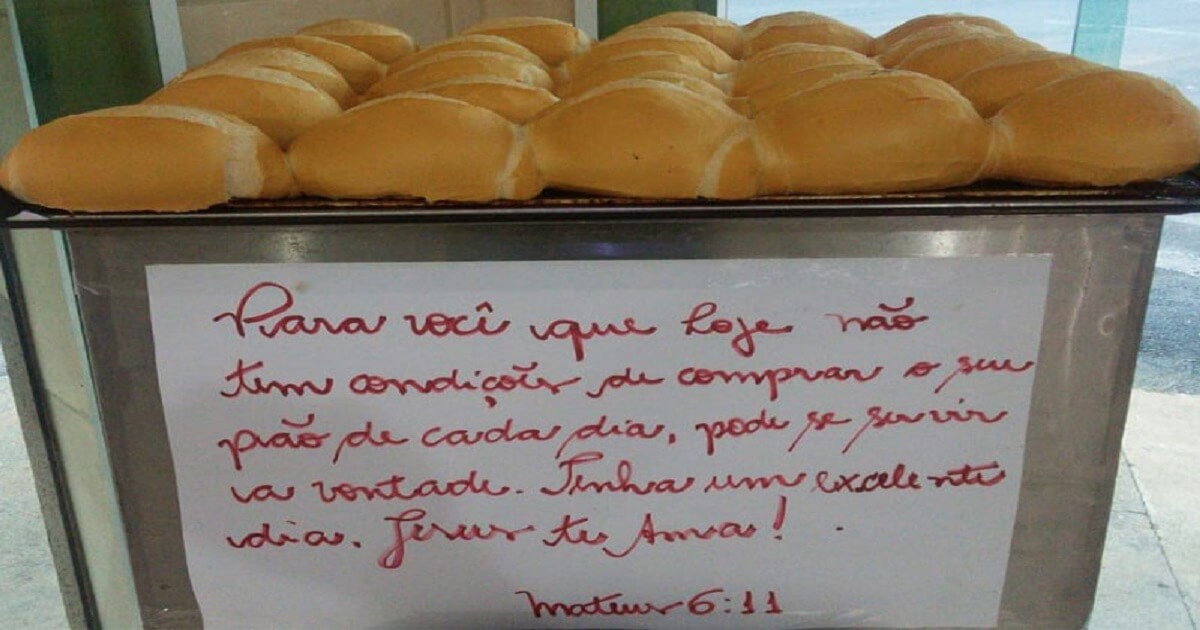 Para você que hoje não
tem condições de comprar o seu
pão de cada dia, pode se servir
a vontade. Tenha um excelente
dia. Jesus te Ama!
Mateus 6:11